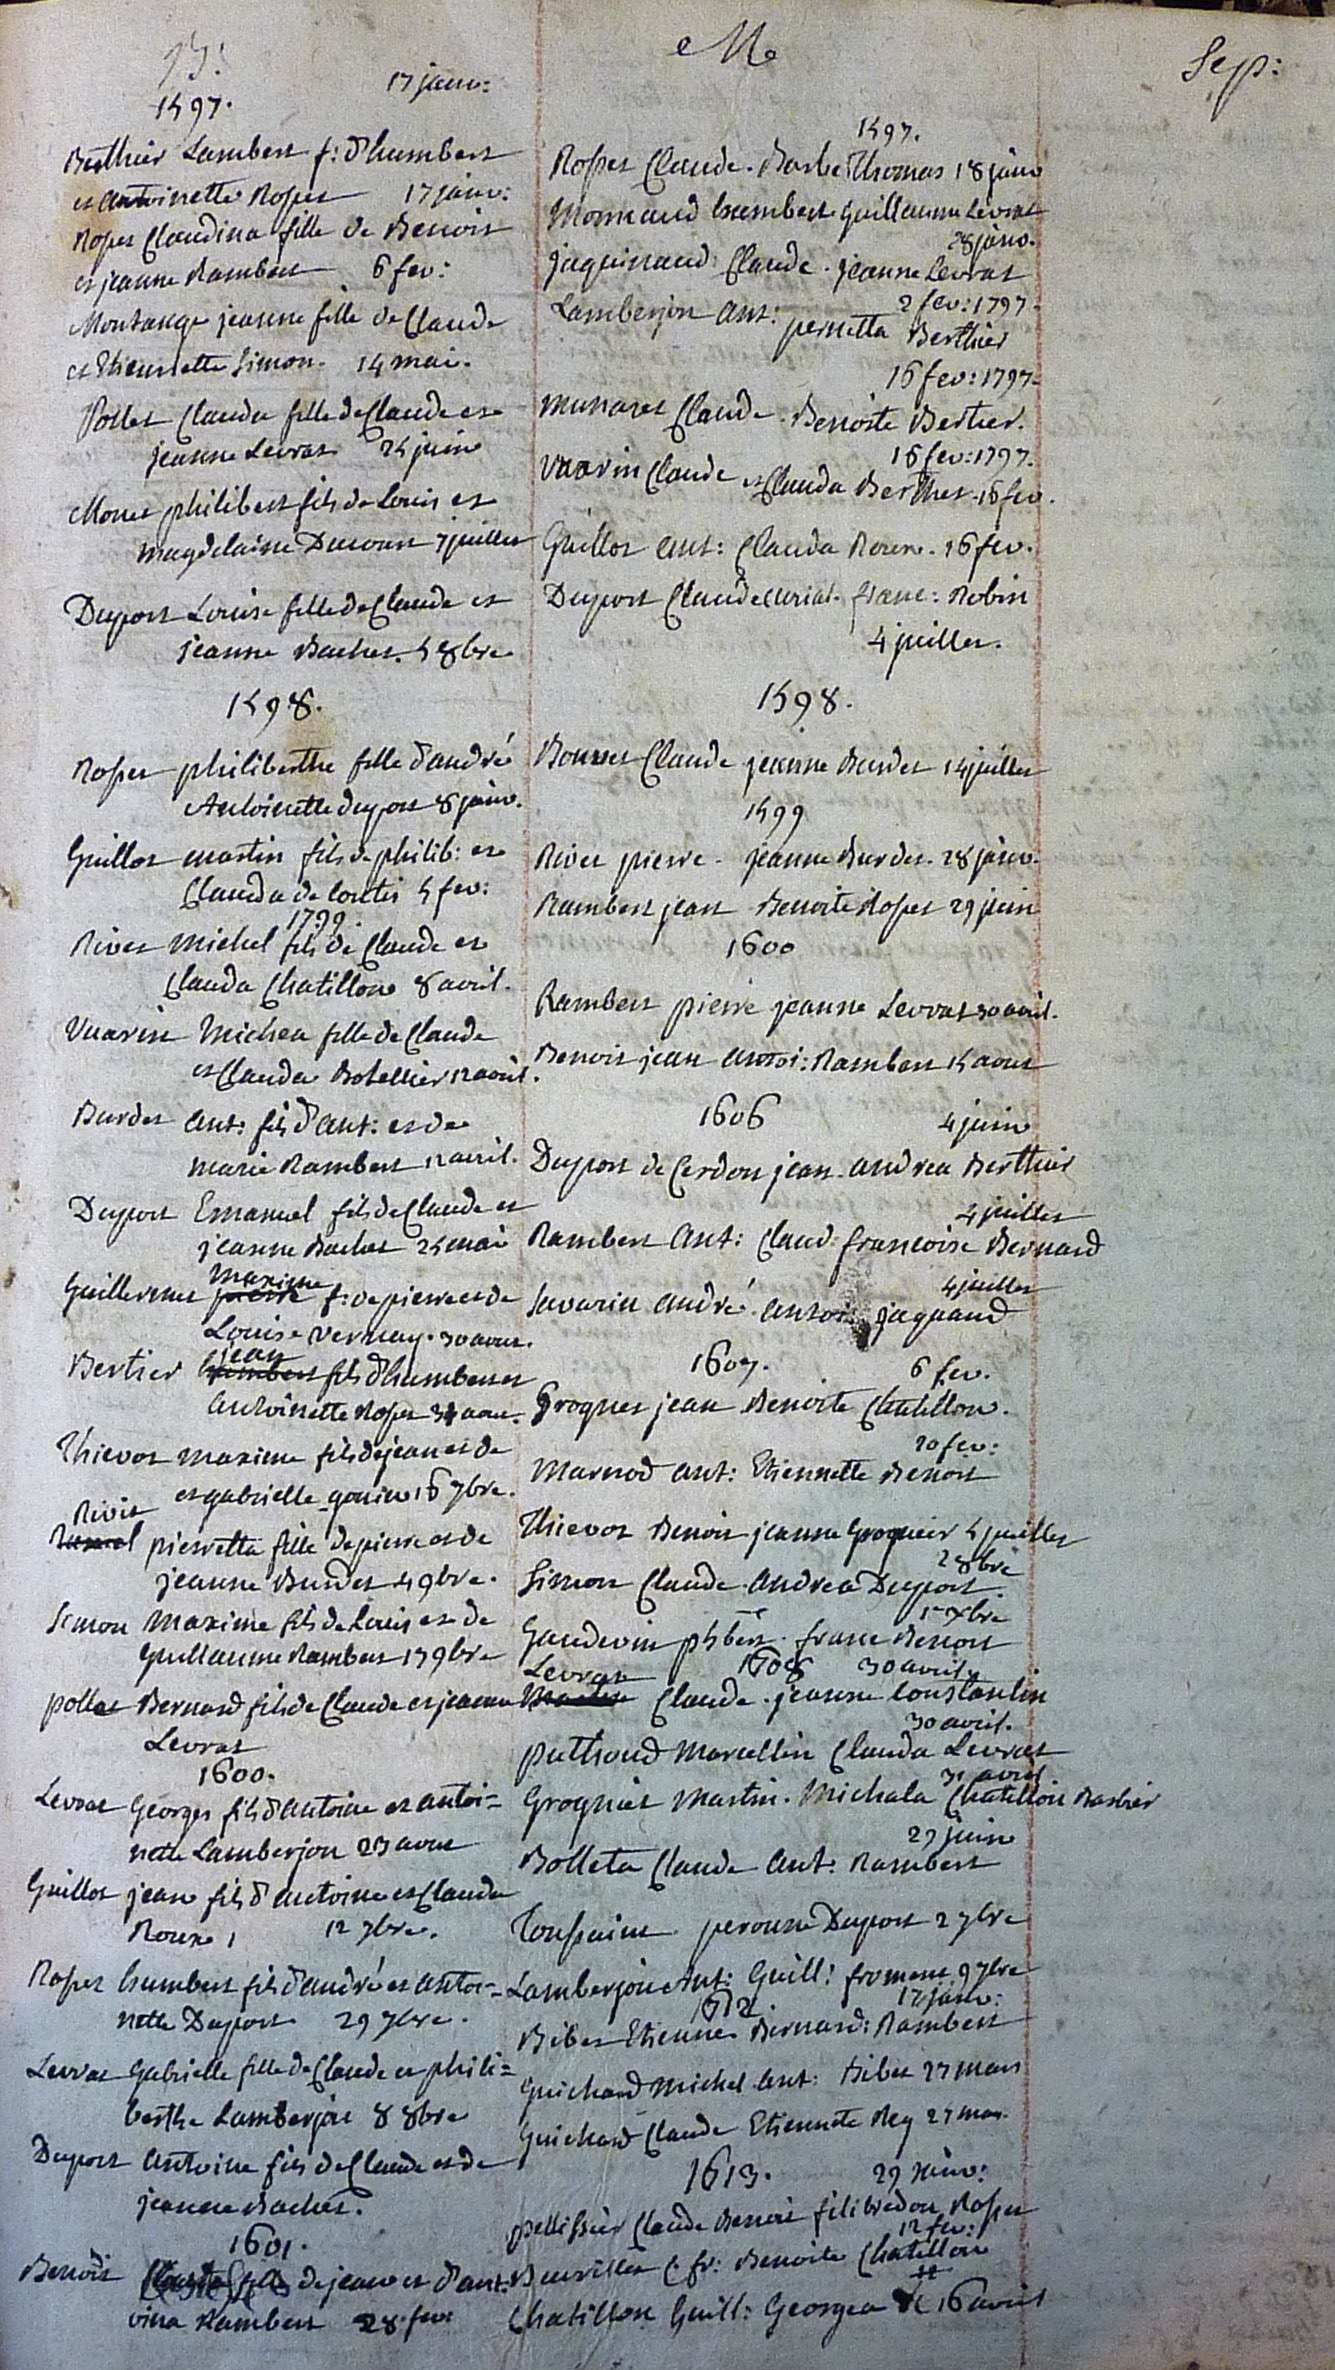 B:
17 janv:
1597.
Berthier Lambert f: d'humbert
et antoinette Rosset 17 janv:
Rosset Claudina fille de Benoit
et jeanne Rambert 6 fev:
Montange jeanne fille de Claude
et Etiennette Simon. 14 mai.
Pollet Clauda fille de Claude et
jeanne Levrat 25 juin
Monet philibert fils de Louis et
magdelaine Ducourt 7 juillet
Duport Louise fille de Claude et
jeanne Bachet. 5 8bre
1598.
Rosset philiberthe fille d'andré
Antoinette duport 8 janv.
Guillot martin fils de philib: et
Clauda de Coutis 5 fev:
1799.
Rivet Michel fils de Claude et
Clauda Chatillon 8 avril.
Vuarin Michea fille de Claude
et Clauda Botellier 12 avril.
Burdet ant: fils d'ant: et de
marie Rambert 12 avril.
Duport Emanuel fils de Claude et
jeanne Bachet 25 mai
maxime
Guillermet pierre f: de pierre et de
Louise vernay. 30 aout.
jean
Bertier humbert fils d'humbert et
antoinette Rosset 31 aout.
Thievot maxime fils de jean et de
et gabrielle gonin 16 7bre.
Rivet
pierretta fille de pierre et de
jeanne Burdet 4 9bre.
Simon Maxime fils de Louis et de
Guillauma Rambert 17 9bre
pollet Bernard fils de Claude et jeanne
Levrat
1600.
Levrat Georges fils d'antoine et antoi=
nette Lamberjon 23 aout
Guillot jean fils d'antoine et Clauda
Roux 12 7bre.
Rosset humbert fils d'andré et antoi=
nette Duport 29 7bre.
Levrat Gabrielle fille de Claude et phili=
berthe Lamberjon 8 8bre
Duport antoine fils de Claude et de
jeanne Bachet.
1601.
Benoit de jean et d'ant:
oina Rambert 28 fev:
M
1597.
Rosset Claude. Barbe Thomas 18 janv
Mornaud humbert Guillauma Levrat
28 janv.
jaquinaud Claude. jeanne Levrat
2 fev: 1797.
Lamberjon ant: pernetta Berthier
16 fev: 1797.
munaret Claude. Benoite Bertier.
16 fev: 1797.
Vuarin Claude et Clauda Berthet. 16 fev.
Guillot ant: Clauda Roux. 16 fev.
Duport Claude curiat. franc: Robin
4 juillet.
1598.
Bonnet Claude jeanne Burdet 14 juillet
1599
Rivet pierre. jeanne Burdet. 28 janv.
Rambert jean Benoite Rosset 29 juin
1600
Rambert pierre jeanne Levrat 30 avril.
Benoit jean antoi: Rambert 15 aout
1606
4 juin
Duport de Cerdon jean. andrea Berthier
4 juillet
Rambert Ant: Claud: francoise Bernard
4 juillet
Savarin André. antoi: jaquand
1607.
6 fev.
Grognet jean Benoite Chatillon.
20 fev:
Marnod ant: Etiennette Benoit
Thievot Benoit jeanne Grognier 5 juillet
2 8bre
Simon Claude. andrea Duport
1er Xbre
Gaudevin phbert. franc Benoit
1608
30 avril.
Levrat
Claude. jeanne Constantin
30 avril.
puthoud Marcellin Clauda Levrat
31 avril
Grognier Martin. Michala Chatillon Barbier
27 juin
Bolleta Claude Ant: Rambert
Toussaint peronne Duport 2 7bre
Lamberjon Ant: Guill: froment 9 7bre
1612.
17 janv:
Bibet Etienne Bernard: Rambert
Guichard Michel ant: Bibet 27 mars
Guichard Claude Etiennete Rey 27 mar.
1613.
29 janv:
pellissier Claude Benoit Rosset
12 fev:
C. fr: Benoite Chatillon
Chatillon Guill: Georgea 16 avril
Sep: